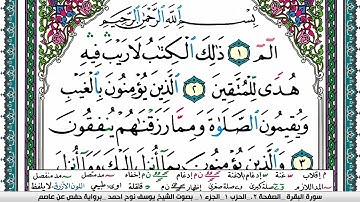 بِسْمِ اللَّهِ الرَّحْمَٰنِ الرَّحِيمِ
الٓمٓ ١ ذَٰلِكَ الْكِتَٰبُ لَا رَيْبَ فِيهِ
هُدًى لِّلْمُتَّقِينَ ٢ الَّذِينَ يُؤْمِنُونَ بِالْغَيْبِ
وَيُقِيمُونَ الصَّلَوٰةَ وَمِمَّا رَزَقْنَٰهُمْ يُنفِقُونَ
٣ وَالَّذِينَ يُؤْمِنُونَ بِمَآ أُنزِلَ إِلَيْكَ وَمَآ أُنزِلَ
سورة البقرة الصفحة ٢ـ الحزب ١ـ الجزء ١ـ بصوت الشيخ يوسف نوح احمد ـ برواية حفص عن عاصم